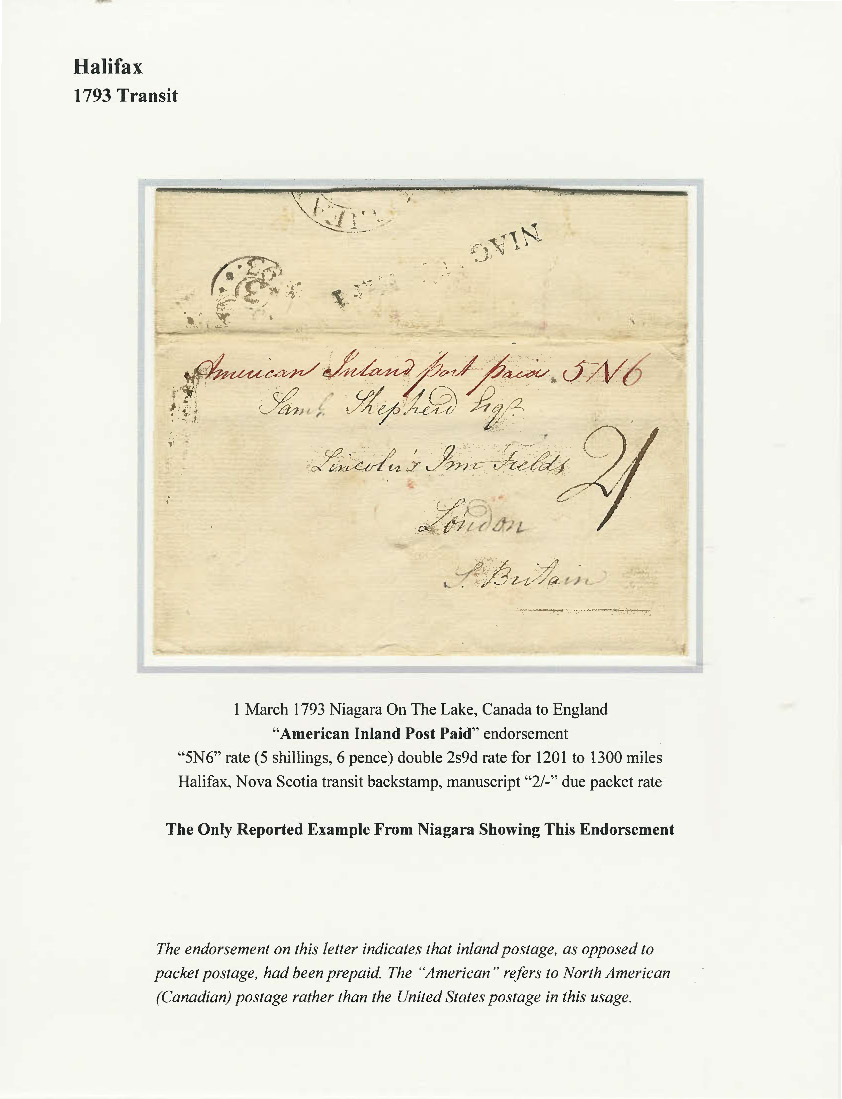 Halifax
1793 Transit
NIAG
American Inland Post paid. 5N6
Saml. Shepherd Esqr.
Lincoln's Inn Fields
2/
London
S. Britain
1 March 1793 Niagara On The Lake, Canada to England
“American Inland Post Paid” endorsement
“5N6” rate (5 shillings, 6 pence) double 2s9d rate for 1201 to 1300 miles
Halifax, Nova Scotia transit backstamp, manuscript “2/-” due packet rate
The Only Reported Example From Niagara Showing This Endorsement
The endorsement on this letter indicates that inland postage, as opposed to
packet postage, had been prepaid. The “American” refers to North American
(Canadian) postage rather than the United States postage in this usage.